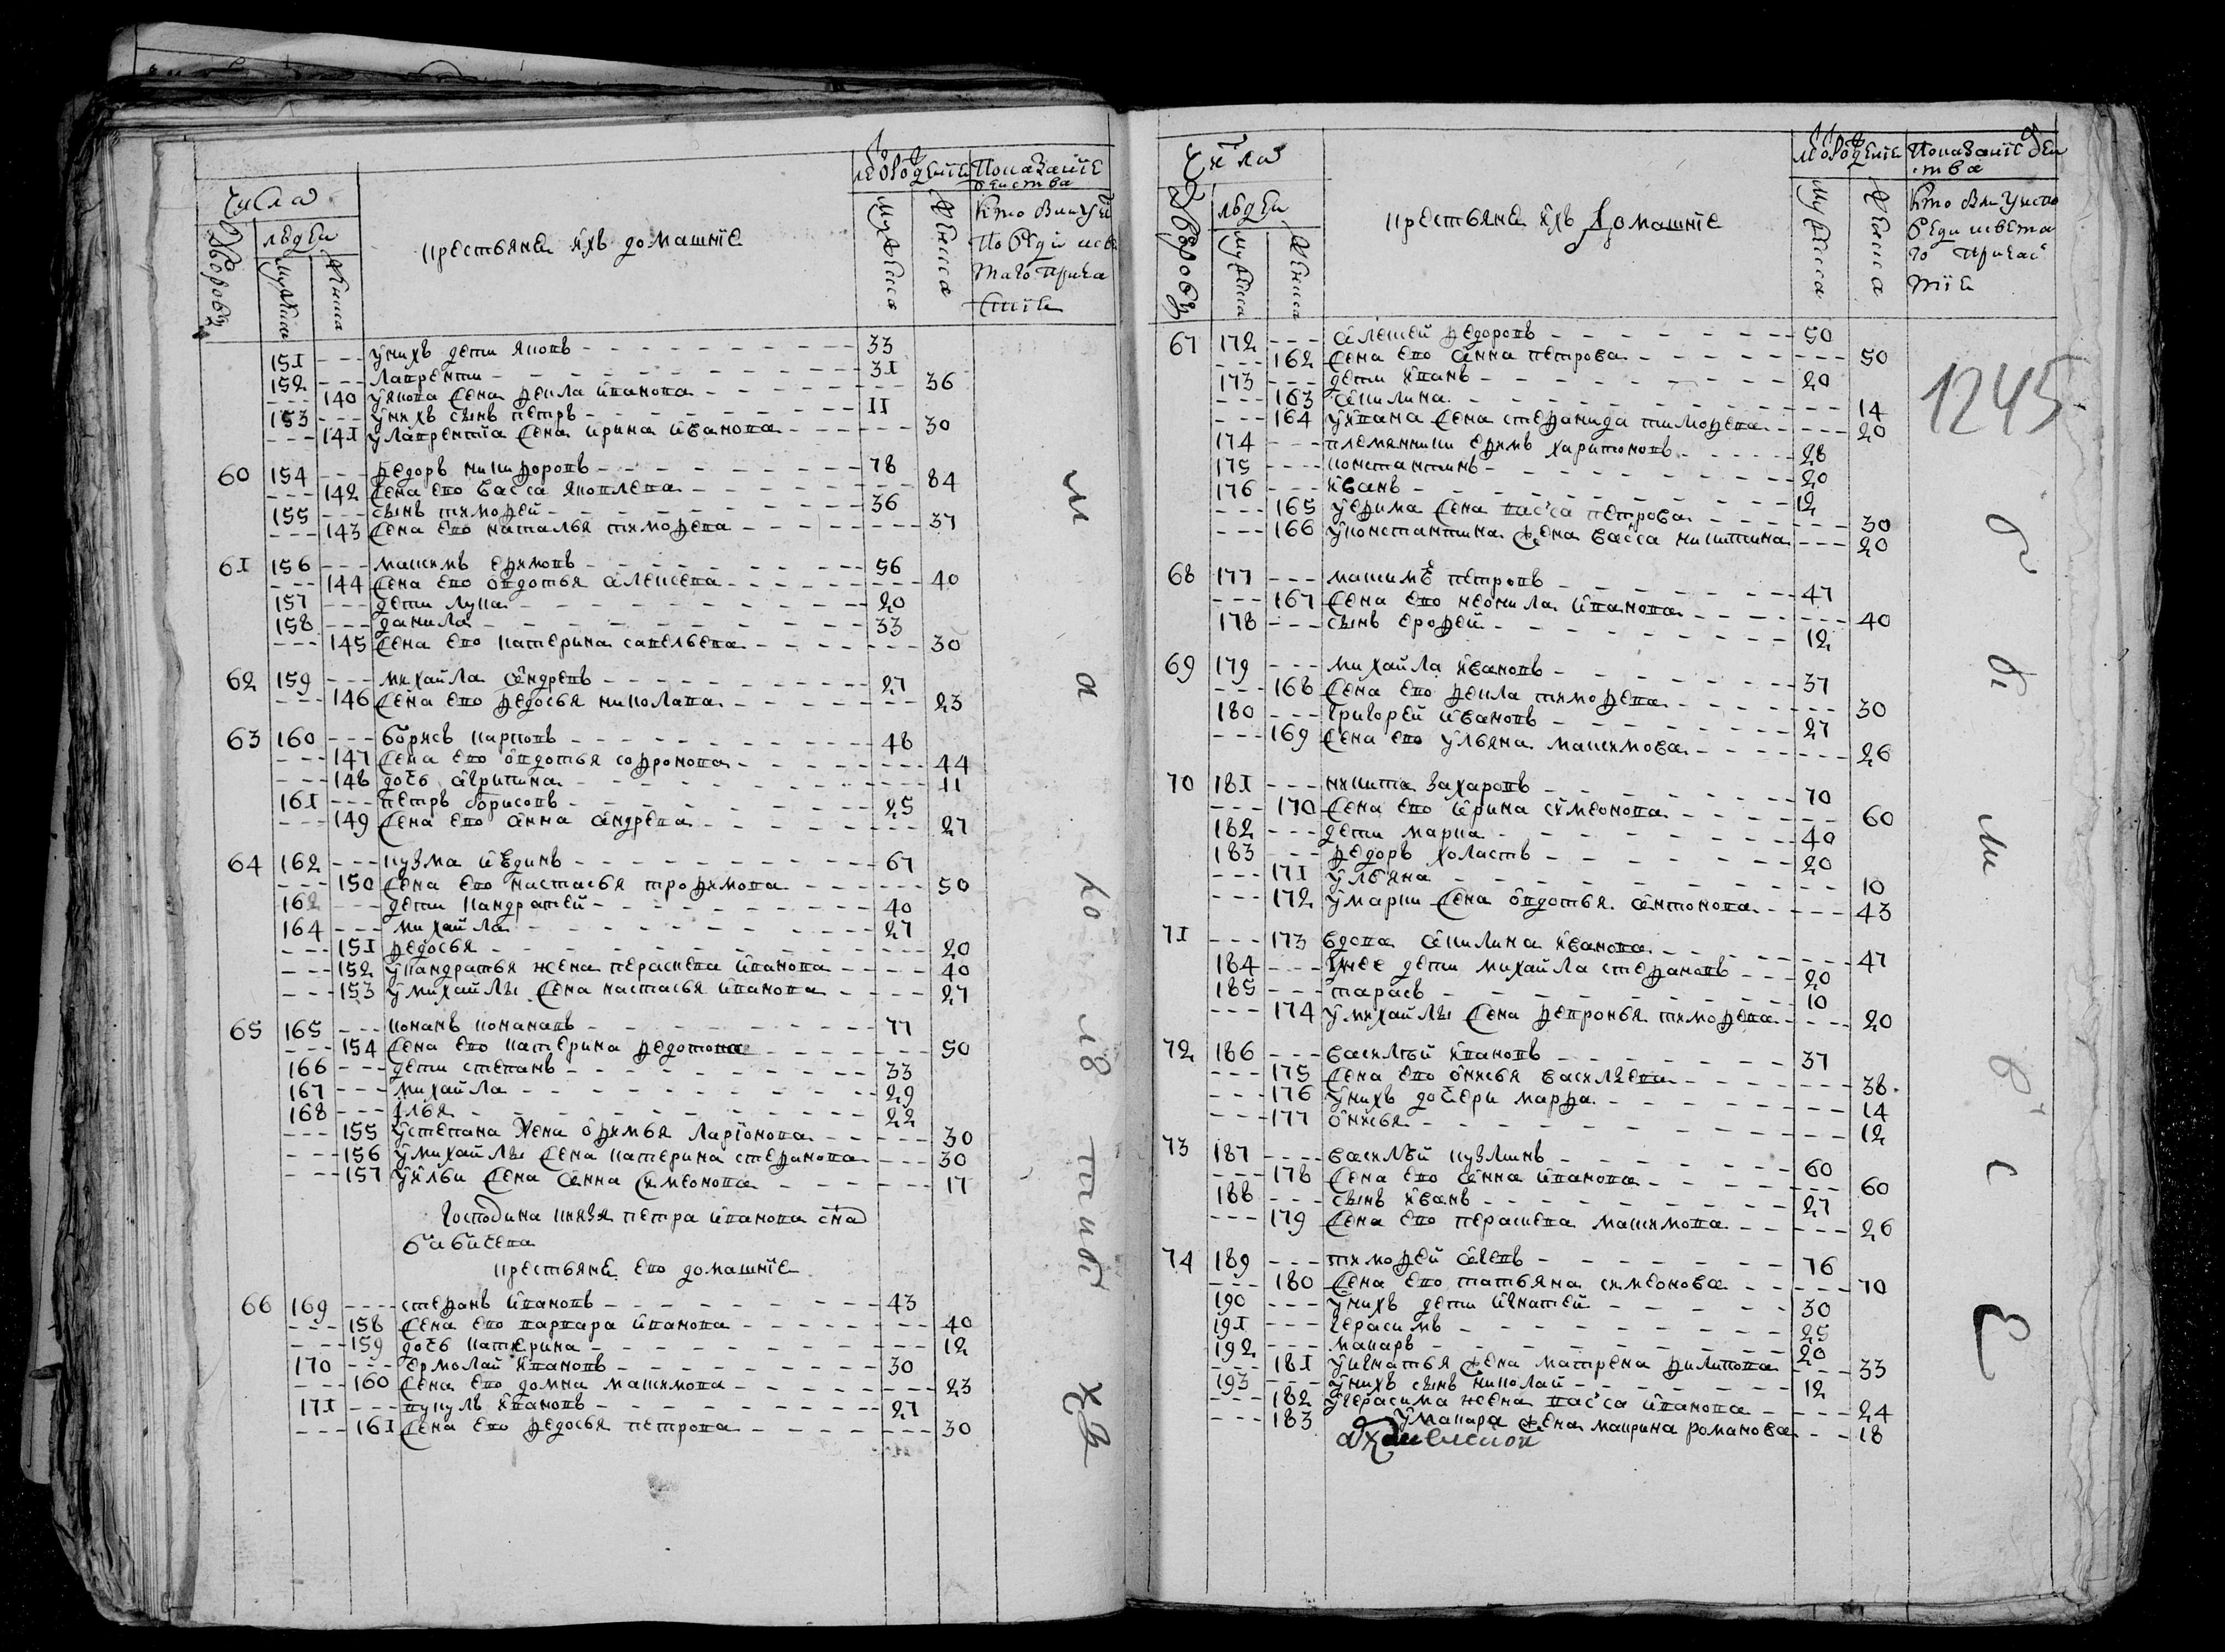 числа
людей
дворовъ
мужеска
женска
крестьяне ихъ домашние
мужеска
женска
Показание
действа
Кто былъ у исповеди и св
таго прича
стия
151 --- у нихъ дети яковъ --- 33
152 --- лаврентей --- 31
--- 140 у якова жена фекла иванова --- 36
153 --- у нихъ сынъ петръ --- 11
--- 141 у лаврентiа жена ирина иванова --- 30
60 154 --- федоръ никифоровъ --- 78
--- 142 жена ево васса яковлева --- 84
155 --- сынъ тимофей --- 36
--- 143 жена ево наталья тимофева --- 37
61 156 --- максимъ ефимовъ --- 56
--- 144 жена ево овдотья алексева --- 40
157 --- дети лука --- 20
158 --- данила --- 33
--- 145 жена ево катерина савельева --- 30
62 159 --- михайла андревъ --- 27
--- 146 жена ево федосья николава --- 23
63 160 --- борисъ карповъ --- 48
--- 147 жена ево овдотья софронова --- 44
--- 148 дочь агрипина --- 11
161 --- петръ борисовъ --- 25
--- 149 жена ево анна андрева --- 27
64 162 --- кузма --- 67
--- 150 жена ево настасья трофимова --- 50
162 --- дети кандратей --- 40
164 --- михайла --- 27
--- 151 федосья --- 20
--- 152 у кандратья жена пераскева иванова --- 40
--- 153 у михайлы жена настасья иванова --- 27
65 165 --- кононъ --- 77
--- 154 жена ево катерина федотова --- 50
166 --- дети степанъ --- 33
167 --- михайла --- 29
168 --- илья --- 22
--- 155 у степана жена офимья ларiонова --- 30
--- 156 у михайлы жена катерина стефанова --- 30
--- 157 у ильи жена анна симеонова --- 17
господина князя петра иванова сна
бабичева
крестьяне ево домашнiе
66 169 --- стефанъ ивановъ --- 43
--- 158 жена ево варвара иванова --- 40
--- 159 дочь катерина --- 12
170 --- ермолай ивановъ --- 30
--- 160 жена ево домна максимова --- 23
171 --- вукулъ ивановъ --- 27
--- 161 жена ево федосья петрова --- 30
числа
людей
дворовъ
мужеска
женска
крестьяне ихъ домашнiе
мужеска
женска
Показанiе дей
ства
67 172 --- алексей федоровъ --- 50
--- 162 жена ево анна петрова --- 50
173 --- дети иванъ --- 20
--- 163 акилина --- 14
--- 164 у ивана жена стефанида тимофева --- 20
174 --- племянники ефимъ харитоновъ --- 28
175 --- константинъ --- 20
176 --- иванъ --- 12
--- 165 у ефима жена васса петрова --- 30
--- 166 у константина жена васса никитина --- 20
68 177 --- максимъ петровъ --- 47
--- 167 жена ево неонила иванова --- 40
178 --- сынъ ерофей --- 12
69 179 --- михайла ивановъ --- 37
--- 168 жена ево фекла тимофева --- 30
180 --- григорей ивановъ --- 27
--- 169 жена ево ульяна максимова --- 26
70 181 --- никита захаровъ --- 70
--- 170 жена ево ирина симеонова --- 60
182 --- дети марка --- 40
183 --- федоръ холастъ --- 20
--- 171 ульяна --- 10
--- 172 у марки жена овдотья антонова --- 43
71 --- 173 вдова акилина иванова --- 47
184 --- у нее дети михайла стефановъ --- 20
185 --- тарасъ --- 10
--- 174 у михайлы жена февронья тимофева --- 20
72 186 --- василей ивановъ --- 37
--- 175 жена ево онисья васильева --- 38
--- 176 у нихъ дочери марфа --- 14
--- 177 онисья --- 12
73 187 --- василей кузминъ --- 60
--- 178 жена ево анна иванова --- 60
188 --- сынъ иванъ --- 27
--- 179 жена ево пераскева максимова --- 26
74 189 --- тимофей --- 76
--- 180 жена ево татьяна симеонова --- 70
190 --- у нихъ дети игнатей --- 30
191 --- герасимъ --- 25
192 --- макаръ --- 20
--- 181 у игнатья жена матрена филипова --- 33
193 --- у нихъ сынъ николай --- 12
--- 182 у герасима жена васса иванова --- 24
--- 183 у макара жена маврина романова --- 18
1245